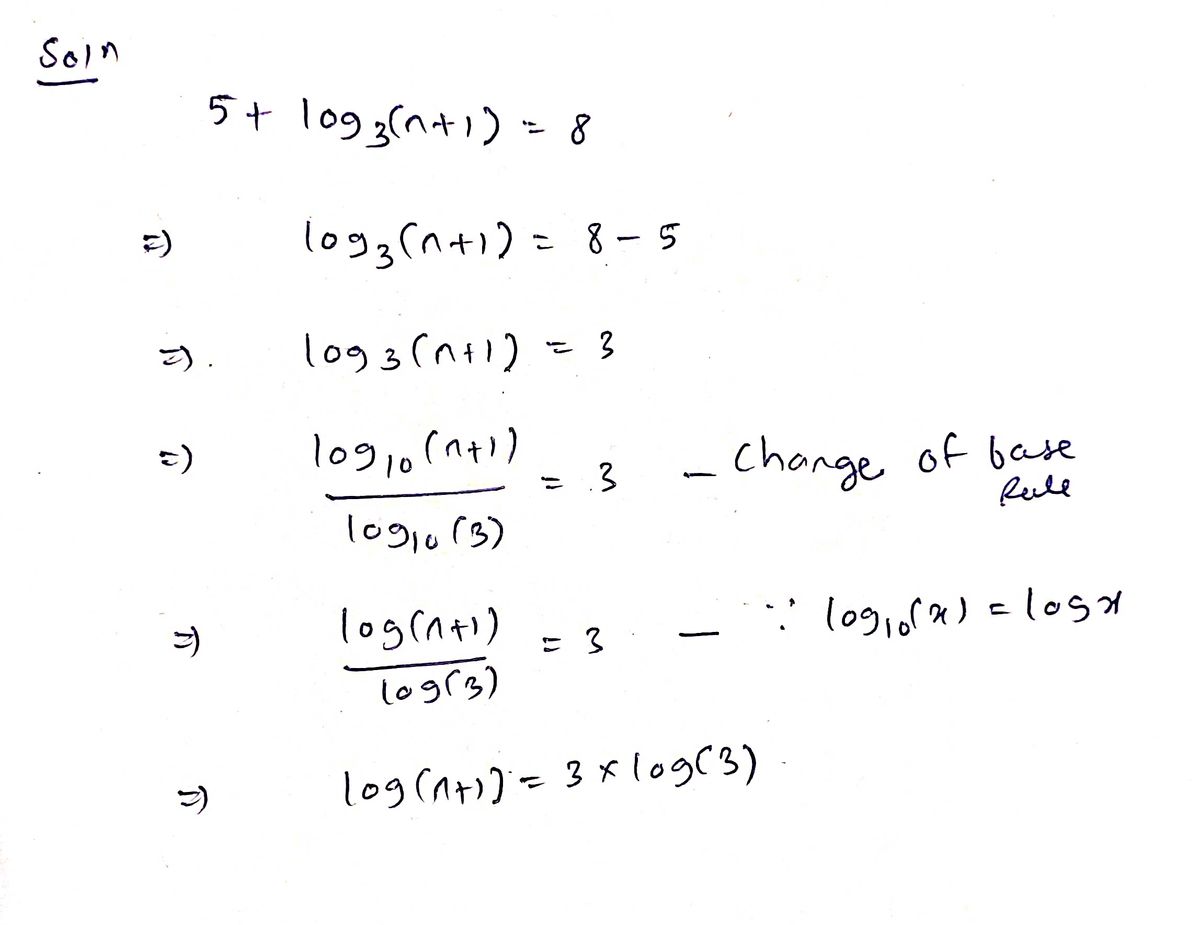 Soln
5 + log₃(n+1) = 8
⇒) log₃(n+1) = 8 − 5
⇒). log₃(n+1) = 3
⇒) log₁₀(n+1) / log₁₀(3) = 3 – Change of base Rule
⇒) log(n+1) / log(3) = 3 – ∵ log₁₀(x) = log x
⇒) log(n+1) = 3 × log(3)